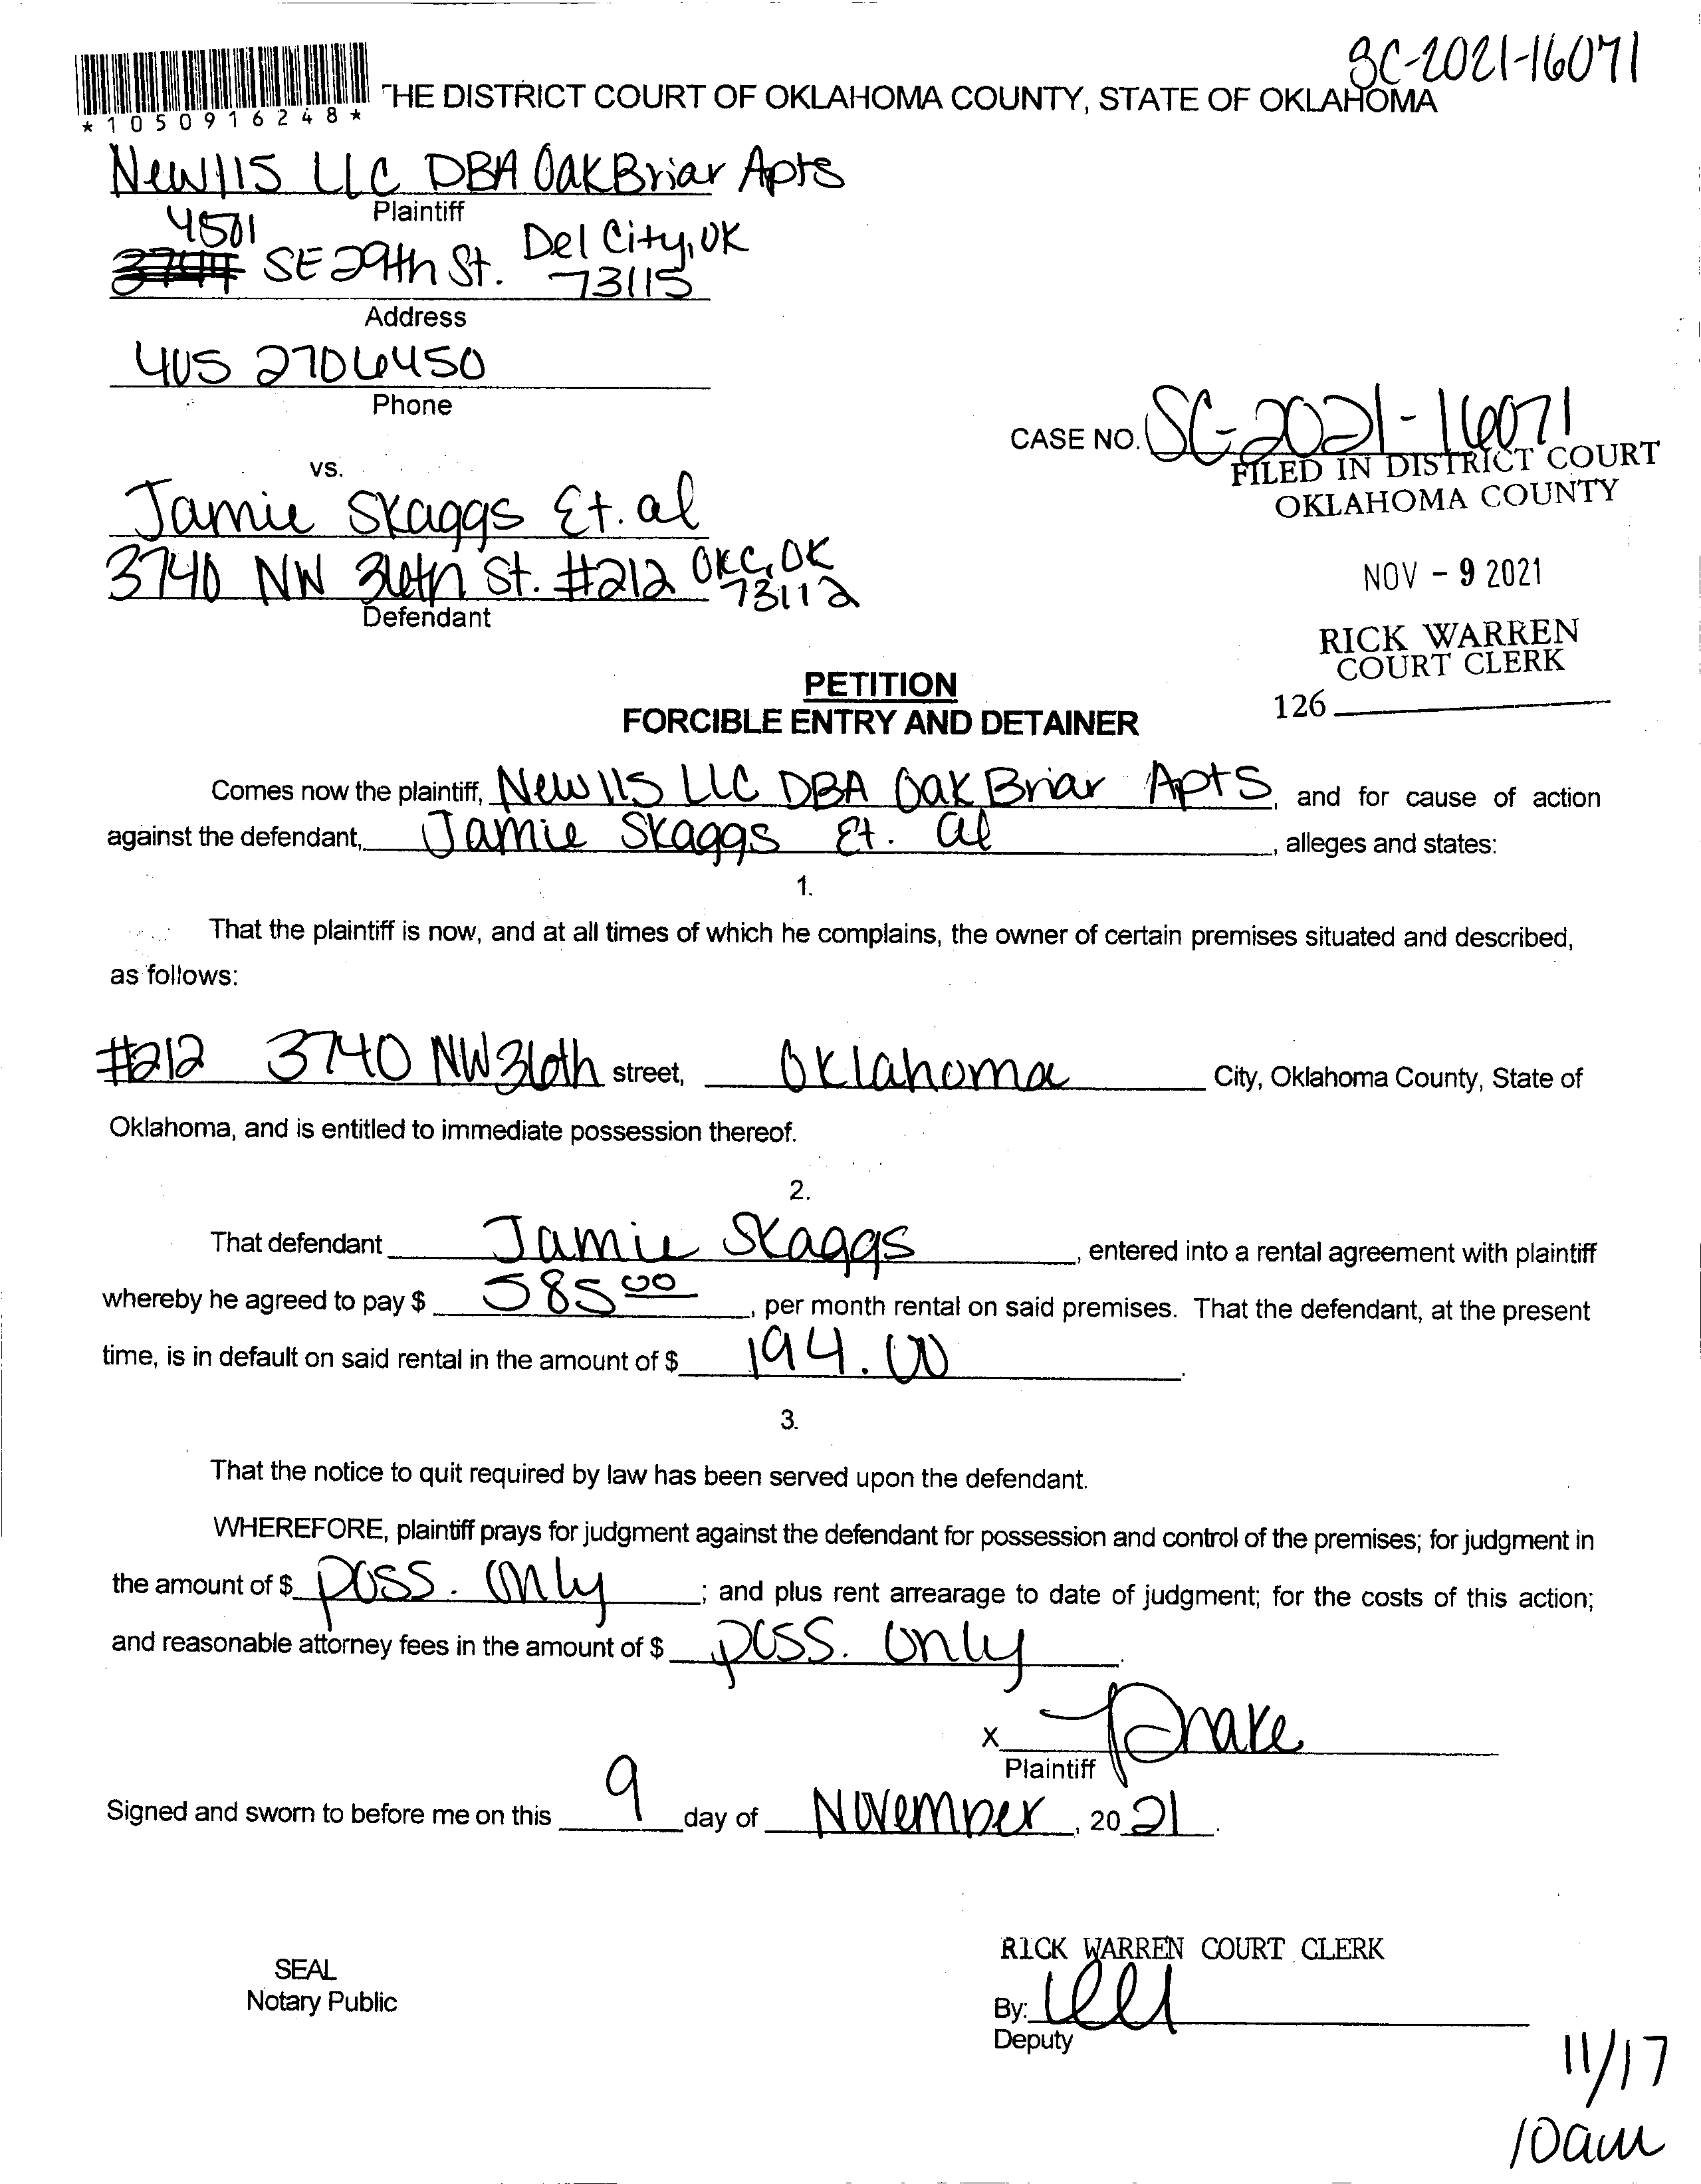 SC-2021-16071
THE DISTRICT COURT OF OKLAHOMA COUNTY, STATE OF OKLAHOMA
*1050916248*
New115 LLC DBA Oak Briar Apts
Plaintiff
4501
SE 29th St. Del City, OK
73115
Address
405 2706450
Phone
CASE NO. SC-2021-16071
FILED IN DISTRICT COURT
OKLAHOMA COUNTY
vs.
Jamie Skaggs Et. al
3740 NW 36th St. #212 OKC, OK
73112
Defendant
NOV - 9 2021
RICK WARREN
COURT CLERK
126
PETITION
FORCIBLE ENTRY AND DETAINER
Comes now the plaintiff, New 115 LLC DBA Oak Briar Apts, and for cause of action
against the defendant, Jamie Skaggs Et. al, alleges and states:
1.
That the plaintiff is now, and at all times of which he complains, the owner of certain premises situated and described,
as follows:
#212 3740 NW 36th street, Oklahoma City, Oklahoma County, State of
Oklahoma, and is entitled to immediate possession thereof.
2.
That defendant Jamie Skaggs, entered into a rental agreement with plaintiff
whereby he agreed to pay $ 585.00, per month rental on said premises. That the defendant, at the present
time, is in default on said rental in the amount of $ 194.00.
3.
That the notice to quit required by law has been served upon the defendant.
WHEREFORE, plaintiff prays for judgment against the defendant for possession and control of the premises; for judgment in
the amount of $ poss. only; and plus rent arrearage to date of judgment; for the costs of this action;
and reasonable attorney fees in the amount of $ poss. only.
X Drake
Plaintiff
Signed and sworn to before me on this 9 day of November, 20 21.
RICK WARREN COURT CLERK
SEAL
Notary Public
By:
Deputy
11/17
10am